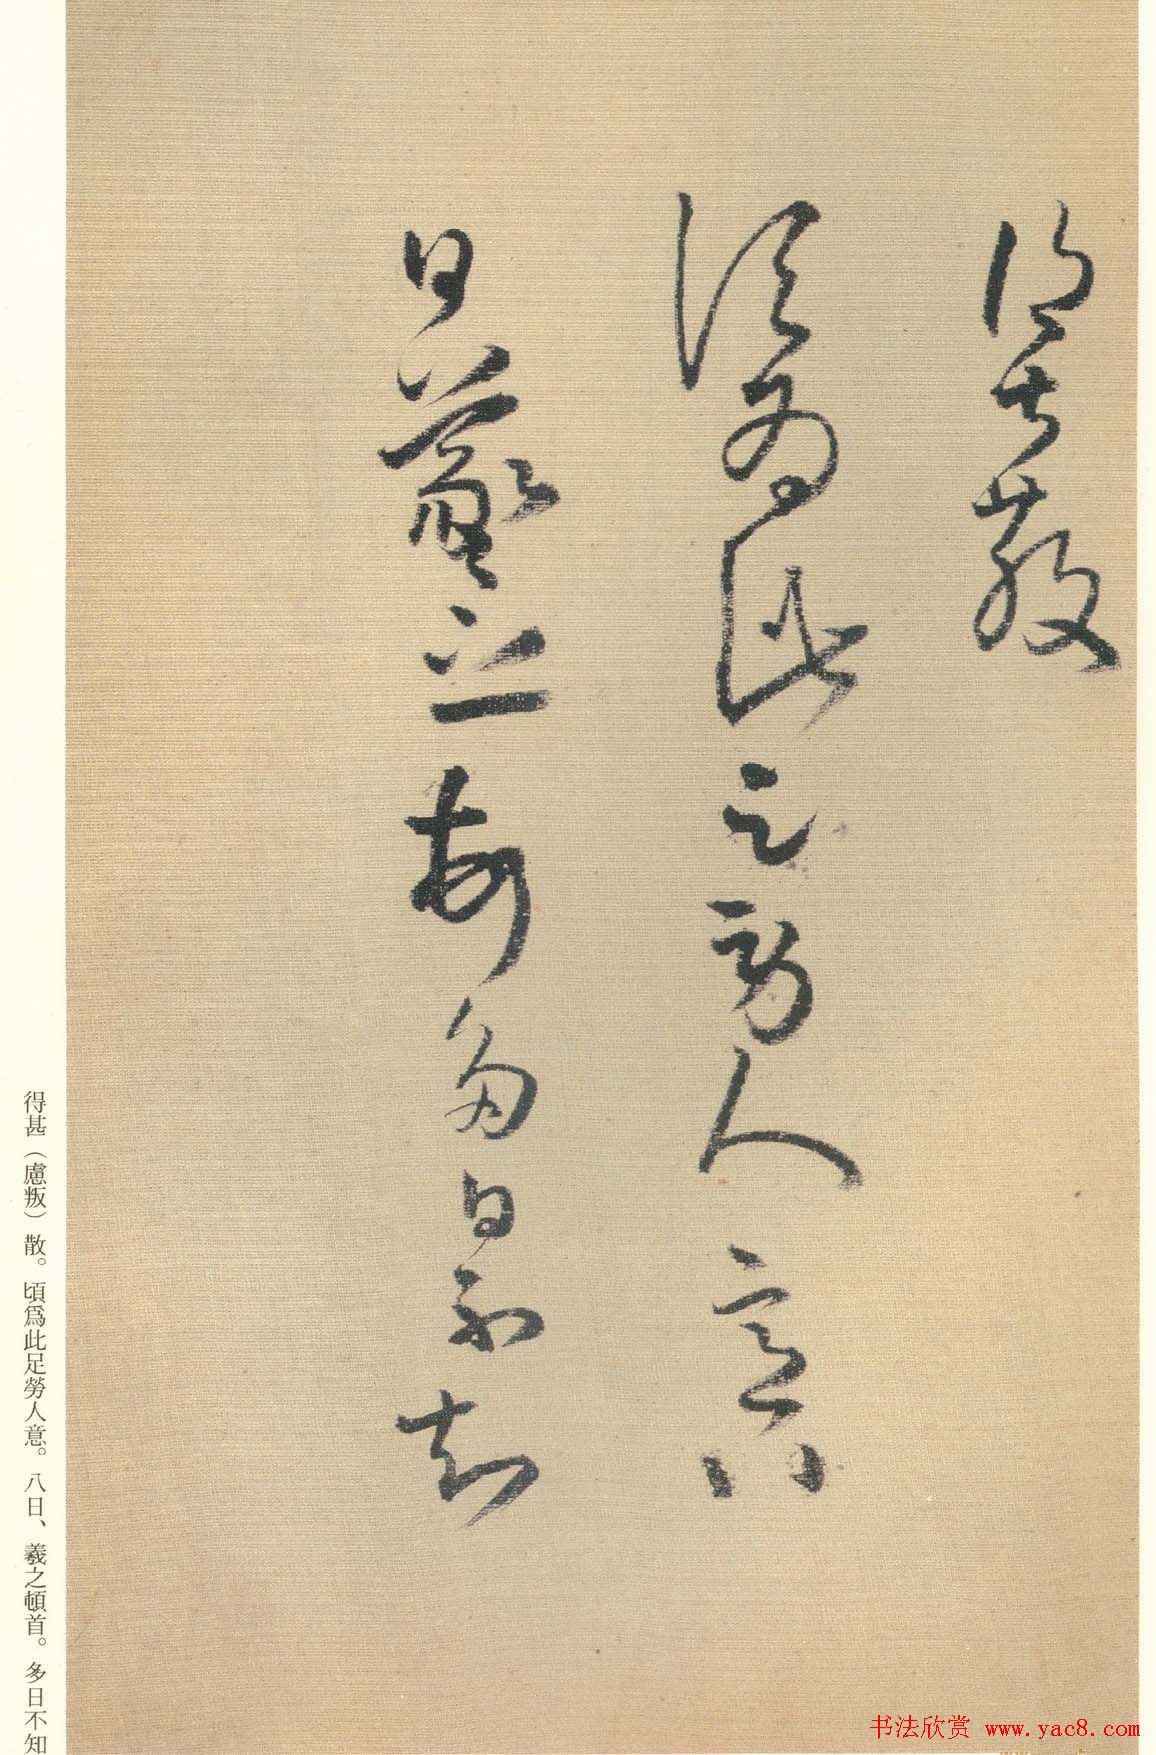 得甚散
頃爲此足勞人意八
日羲之頓首多日不知
得甚（慮叛）散。頃爲此足勞人意。八日、羲之頓首。多日不知
书法欣赏 www.yac8.com